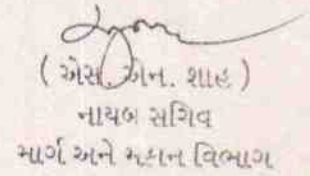 ( એસ. એન. શાહ )
નાયબ સચિવ
માર્ગ અને મકાન વિભાગ